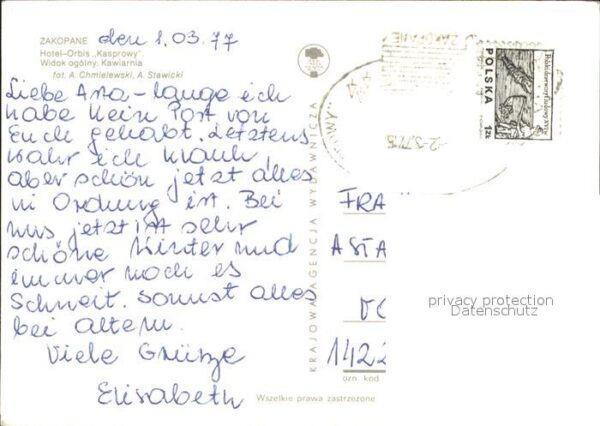 ZAKOPANE
Hotel-Orbis „Kasprowy".
Widok ogólny. Kawiarnia
fot. A. Chmielewski, A. Stawicki
den 1.03.77
Liebe Ana-lange ich
habe kein Post von
Euch gehabt. Letztens
wahr ich krank,
aber schön jetzt alles
in Ordnung ist. Bei
uns jetzt ist sehr
schöne Winter und
immer noch es
Schneit. sonnst alles
bei altem.
Viele Grüsze
Elisabeth
KRAJOWA AGENCJA WYDAWNICZA
ZAKOPANE
-2-3.77.15
POLSKA
1zł
FRA
ASTA
1422
ozn. kod
Wszelkie prawa zastrzeżone
privacy protection
Datenschutz